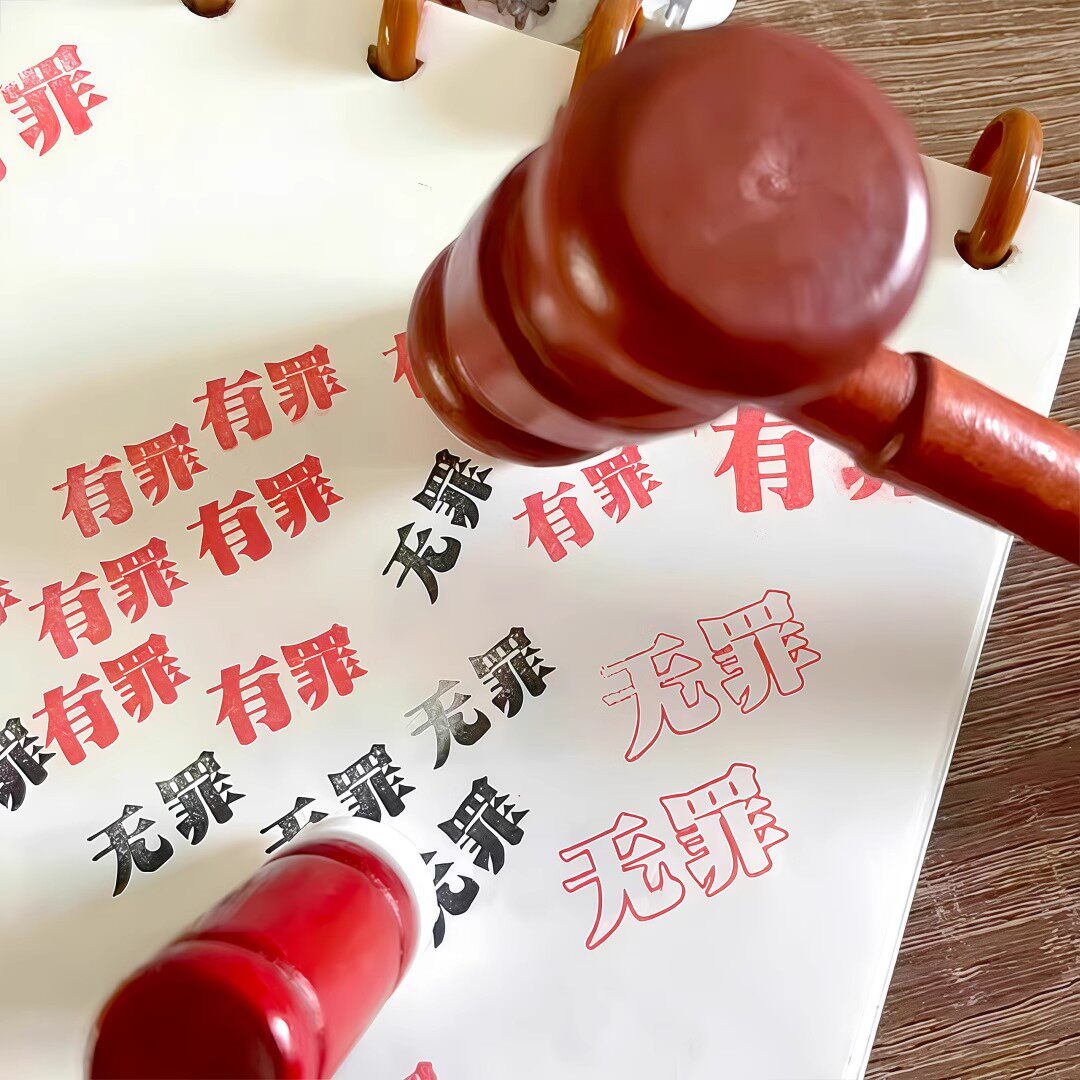 罪
有罪
有罪
有罪
有罪
有罪
有罪
有罪
无罪
有罪
有
无罪
无罪
罪
无罪
无罪
无罪
无罪